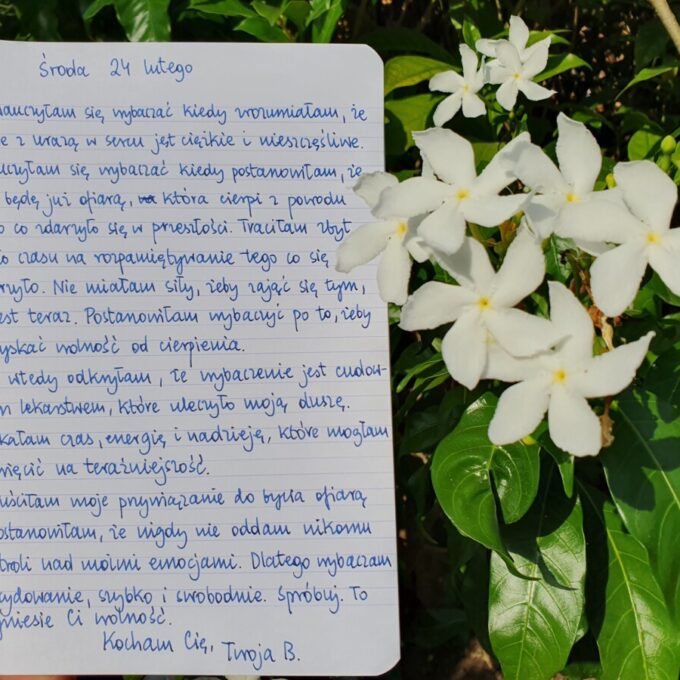 Środa 24 lutego
nauczyłam się wybaczać kiedy zrozumiałam, że
z urazą w sercu jest ciężkie i nieszczęśliwe.
się wybaczać kiedy postanowiłam, że
będę już ofiarą, która cierpi z powodu
co zdarzyło się w przeszłości. Traciłam zbyt
czasu na rozpamiętywanie tego co się
Nie miałam siły, żeby zająć się tym,
jest teraz. Postanowiłam wybaczyć po to, żeby
wolność od cierpienia.
wtedy odkryłam, że wybaczenie jest cudow-
lekarstwem, które uleczyło moją duszę.
czas, energię i nadzieję, które mogłam
na teraźniejszość.
moje przywiązanie do bycia ofiarą
że nigdy nie oddam nikomu
nad moimi emocjami. Dlatego wybaczam
szybko i swobodnie. Spróbuj. To
Ci wolność.
Kocham Cię, Twoja B.